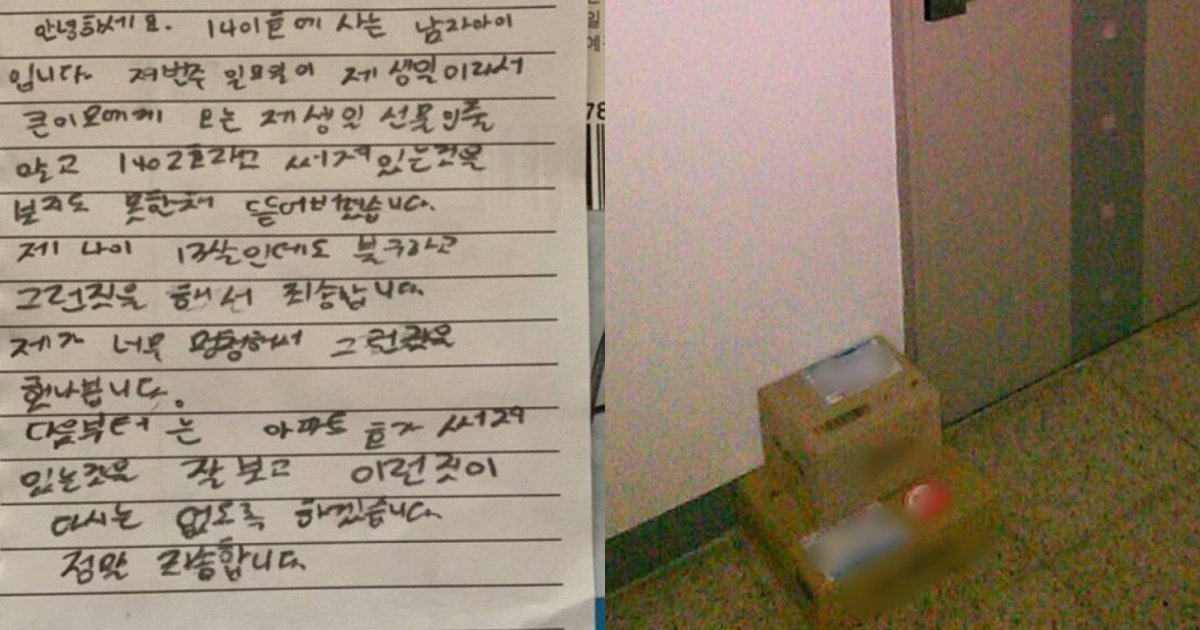 안녕하세요. 1401호에 사는 남자아이
입니다. 저번주 일요일이 제 생일이라서
큰이모에게 오는 제 생일 선물인줄
알고 1402호라고 써져있는것을
보지도 못한채 뜯어버렸습니다.
제 나이 13살인데도 불구하고
그런짓을 해서 죄송합니다.
제가 너무 멍청해서 그런
다음부터는 아파트 호가 써져
있는것을 잘보고 이런짓이
다시는 없도록 하겠습니다.
정말 죄송합니다.
일
예
78